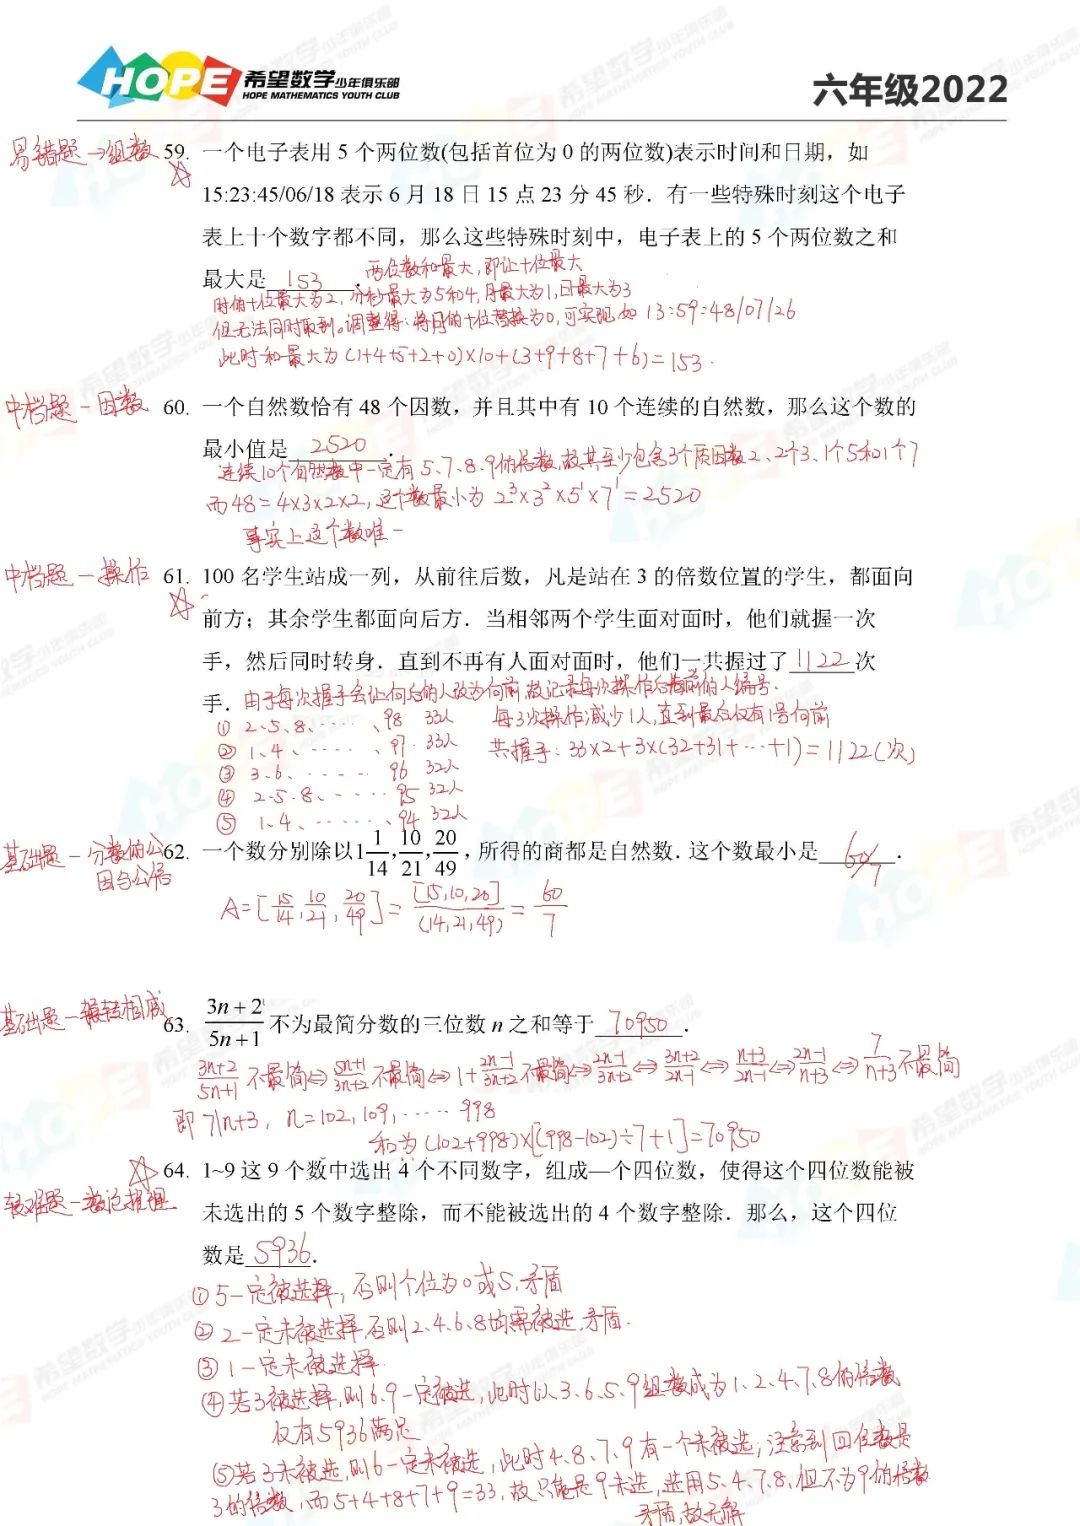 HOPE 希望数学少年俱乐部
HOPE MATHEMATICS YOUTH CLUB
六年级2022
易错题→组数
59. 一个电子表用 5 个两位数(包括首位为 0 的两位数)表示时间和日期，如
15:23:45/06/18 表示 6 月 18 日 15 点 23 分 45 秒．有一些特殊时刻这个电子
表上十个数字都不同，那么这些特殊时刻中，电子表上的 5 个两位数之和
最大是 153 ．
两位数和最大，即让十位最大
时的十位最大为2，分秒最大为5和4，月最大为1，日最大为3
但无法同时取到。调整得：将月的十位替换为0，可实现 如 13:59:48/07/26
此时和最大为 (1+4+5+2+0)×10+(3+9+8+7+6)=153．
中档题－因数
60. 一个自然数恰有 48 个因数，并且其中有 10 个连续的自然数，那么这个数的
最小值是 2520 ．
连续10个自然数中一定有5、7、8、9的倍数，故其至少包含3个质因数2、2个3、1个5和1个7
而48=4×3×2×2，这个数最小为 2³×3²×5¹×7¹=2520
事实上这个数唯一
中档题－操作
61. 100 名学生站成一列，从前往后数，凡是站在 3 的倍数位置的学生，都面向
前方；其余学生都面向后方．当相邻两个学生面对面时，他们就握一次
手，然后同时转身．直到不再有人面对面时，他们一共握过了 1122 次
手．
由于每次握手会让向后的人改为向前，故记录每次操作后为前的人编号．
① 2、5、8、……、98 33人 每3次操作减少1人，直到最后仅有1号向前
② 1、4、……、97 33人 共握手：33×2+3×(32+31+…+1)=1122(次)
③ 3、6、……96 32人
④ 2、5、8、……95 32人
⑤ 1、4、……、94 32人
基础题－分数的公
因与公倍
62. 一个数分别除以1 1/14, 10/21, 20/49，所得的商都是自然数．这个数最小是 60/7 ．
A=[15/14, 10/21, 20/49]=[15,10,20]/(14,21,49)=60/7
基础题－辗转相减
63. (3n+2)/(5n+1) 不为最简分数的三位数 n 之和等于 70950 ．
(3n+2)/(5n+1) 不最简⇔(5n+1)/(3n+2) 不最简⇔1+(2n-1)/(3n+2) 不最简⇔(2n-1)/(3n+2)⇔(3n+2)/(2n-1)⇔(n+3)/(2n-1)⇔(2n-1)/(n+3)⇔7/(n+3) 不最简
即 7|n+3，n=102,109,……998
和为 (102+998)×[(998-102)÷7+1]=70950
较难题－数论推理
64. 1~9 这 9 个数中选出 4 个不同数字，组成—个四位数，使得这个四位数能被
未选出的 5 个数字整除，而不能被选出的 4 个数字整除．那么，这个四位
数是 5936．
① 5一定被选择，否则个位为0或5，矛盾
② 2一定未被选择，否则2、4、6、8均需被选，矛盾．
③ 1一定未被选择
④ 若3被选择，则6、9一定被选，此时以3、6、5、9组数成为1、2、4、7、8的倍数
仅有5936满足
⑤ 若3未被选，则6一定未被选，此时4、8、7、9有一个未被选，注意到四位数是
3的倍数，而5+4+8+7+9=33，故只能是9未选，选用5、4、7、8，但不为9的倍数
矛盾，故无解